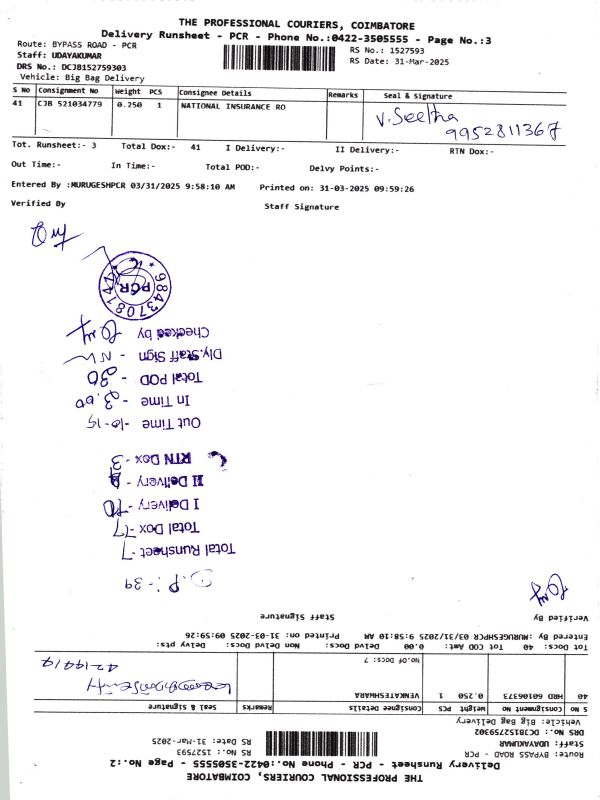 THE PROFESSIONAL COURIERS, COIMBATORE
Delivery Runsheet - PCR - Phone No.:0422-3505555 - Page No.:3
Route: BYPASS ROAD - PCR
RS No.: 1527593
Staff: UDAYAKUMAR
RS Date: 31-Mar-2025
DRS No.: DCJB152759303
Vehicle: Big Bag Delivery
S No Consignment No Weight PCS Consignee Details Remarks Seal & Signature
41 CJB 521034779 0.250 1 NATIONAL INSURANCE RO
V. Seetha
9952811367
Tot. Runsheet:- 3 Total Dox:- 41 I Delivery:- II Delivery:- RTN Dox:-
Out Time:- In Time:- Total POD:- Delvy Points:-
Entered By :MURUGESHPCR 03/31/2025 9:58:10 AM Printed on: 31-03-2025 09:59:26
Verified By Staff Signature
THE PROFESSIONAL COURIERS, COIMBATORE
Delivery Runsheet - PCR - Phone No.:0422-3505555 - Page No.:2
Route: BYPASS ROAD - PCR
RS No.: 1527593
Staff: UDAYAKUMAR
RS Date: 31-Mar-2025
DRS No.: DCJB152759302
Vehicle: Big Bag Delivery
S No Consignment No Weight PCS Consignee Details Remarks Seal & Signature
40 HRD 60106373 0.250 1 VENKATESHWARA
No.OF Docs: 7
Tot Docs: 40 Tot COD Amt: 0.00 Delvd Docs: Non Delvd Docs: Delvy pts:
Entered By :MURUGESHPCR 03/31/2025 9:58:10 AM Printed on: 31-03-2025 09:59:26
Verified By Staff Signature
D.P:-39
Total Runsheet - 7
Total Dox - 77
I Delivery - 70
II Delivery - 4
RTN Dox - 3
Out Time - 10-15
In Time - 3.00
Total POD - 30
Dly.Staff Sign -
Checked by
PCR
9843708144